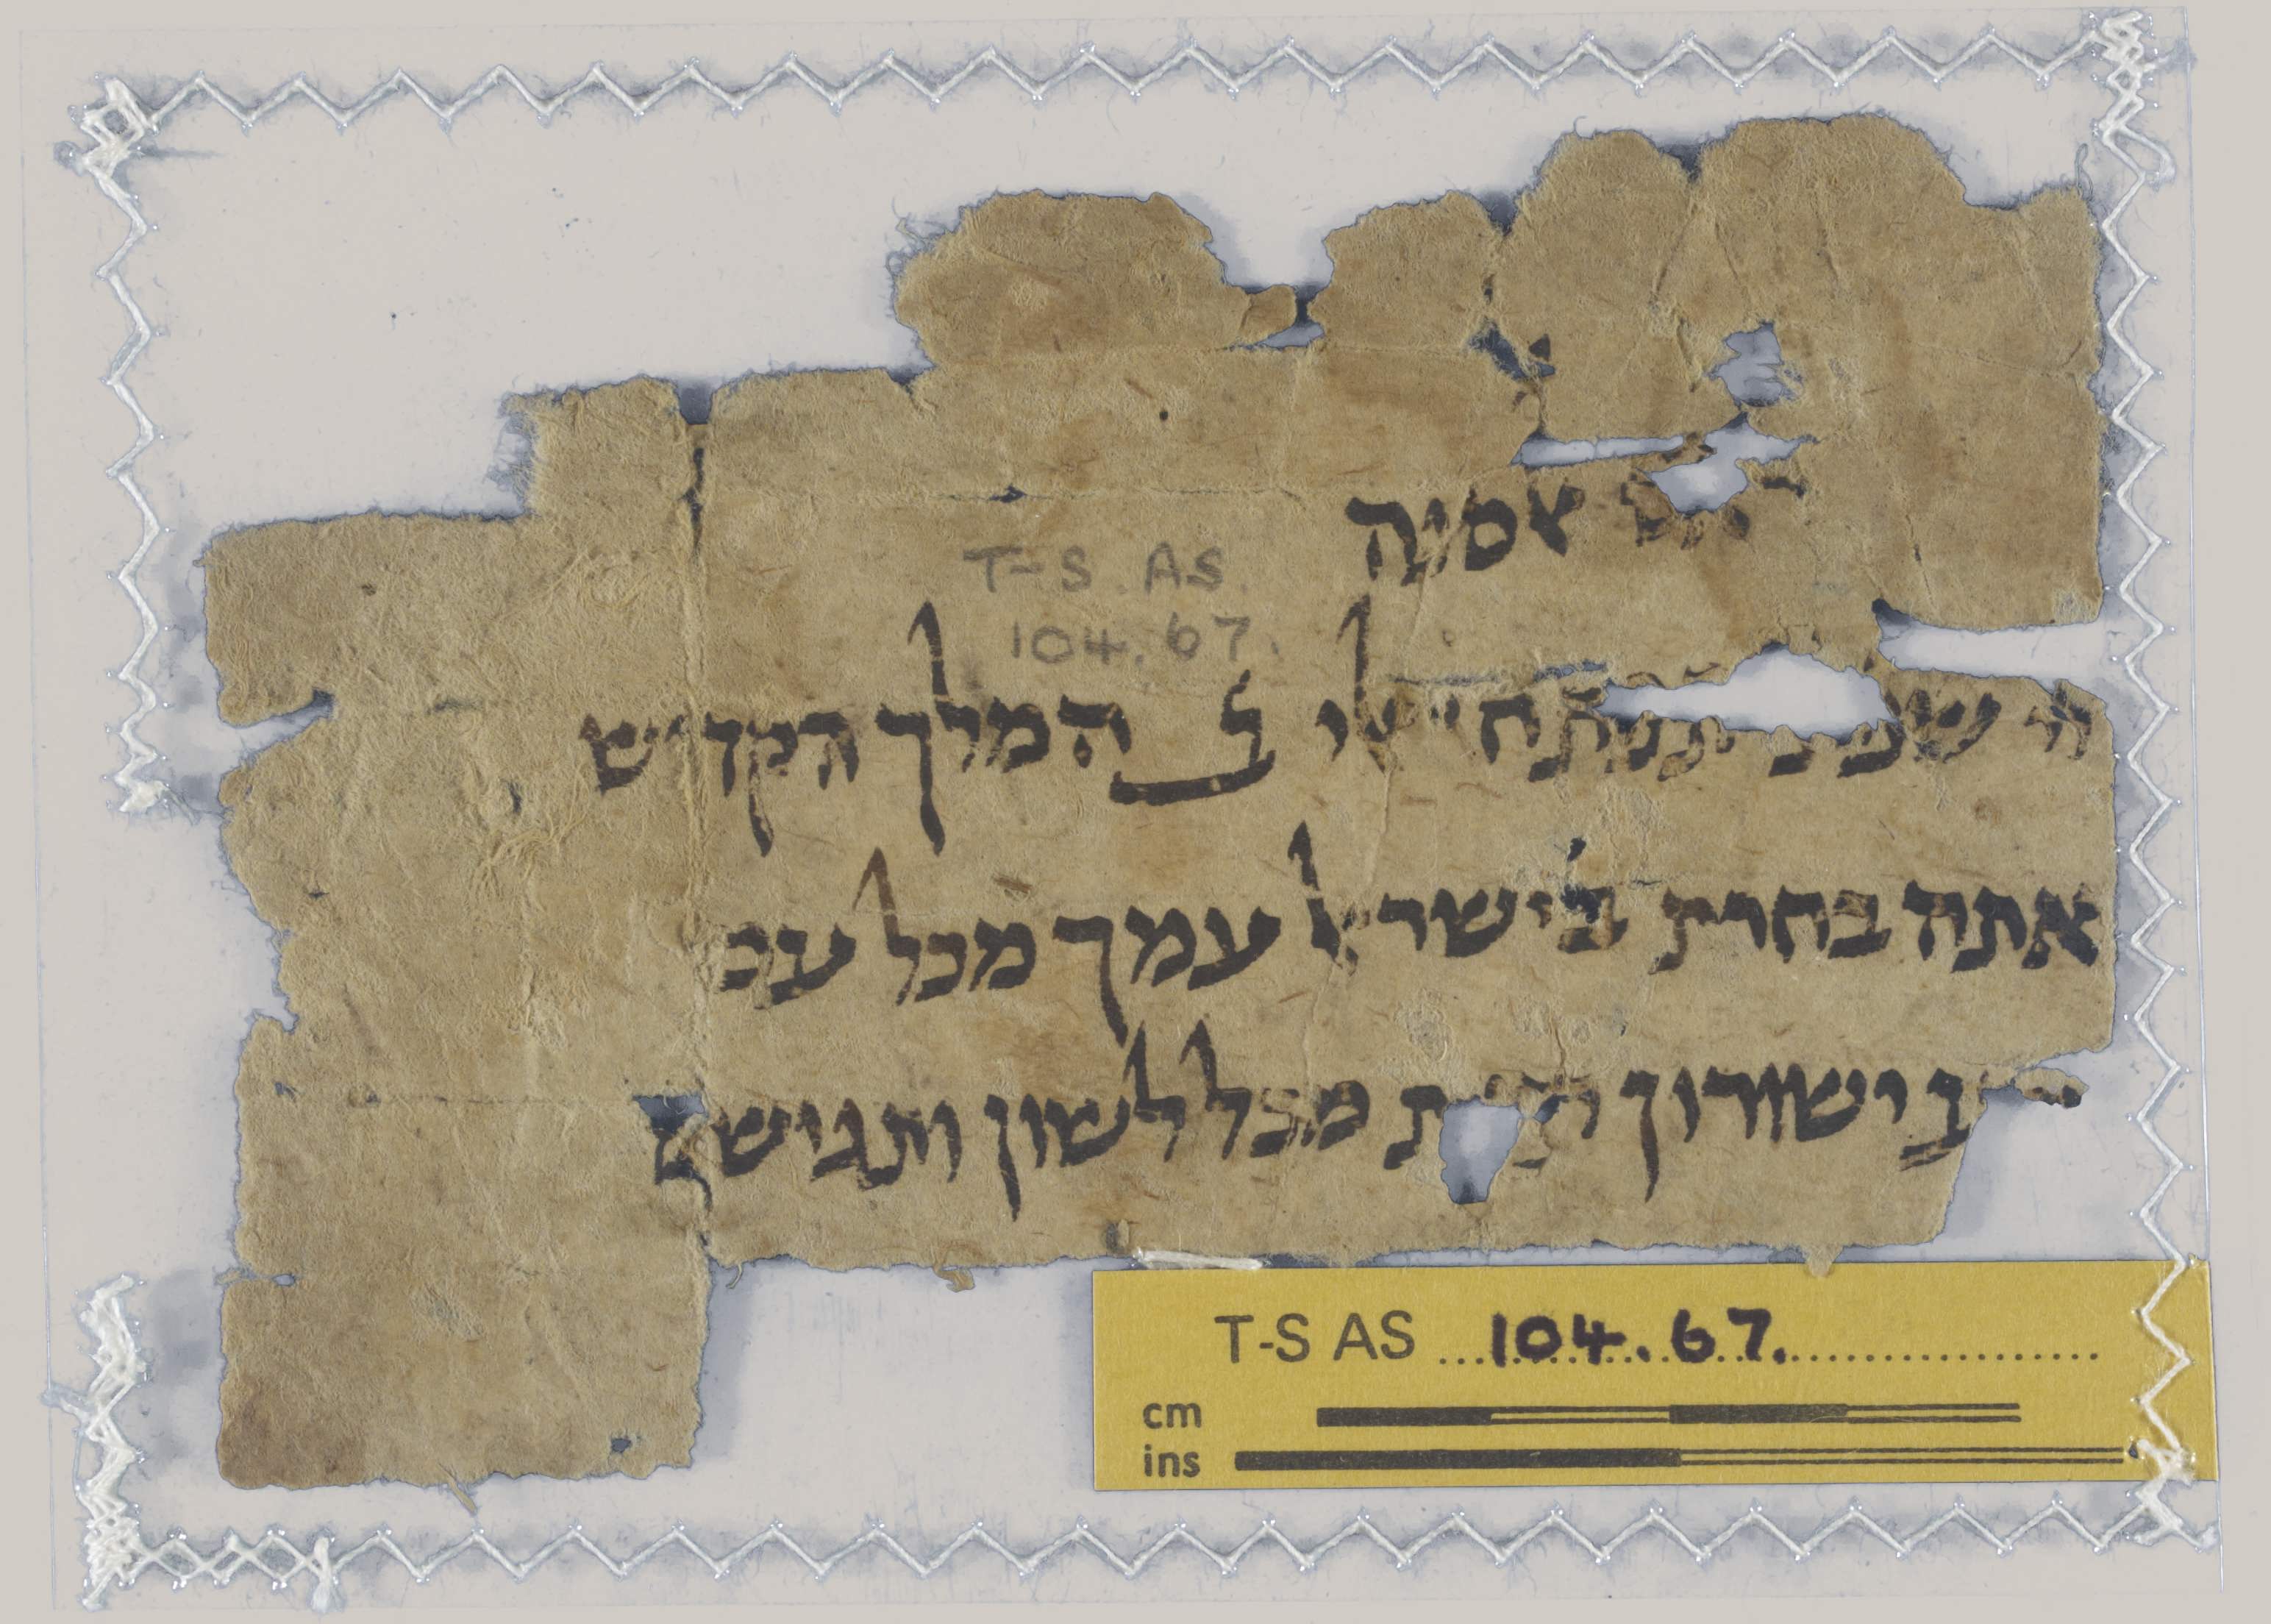 אסיה
T-S. AS.
104.67.
יי שפת תפתח ב המלך הקדוש
אתה בחרת בישראל עמך מכל עם
בישורון מכל לשון ותגיש
T-S AS 104.67.
cm
ins